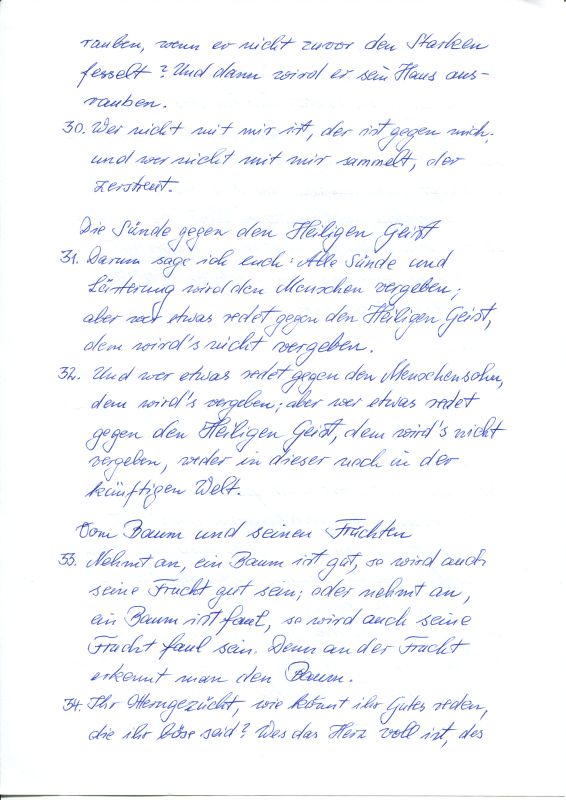 rauben, wenn er nicht zuvor den Starken
fesselt? Und dann wird er sein Haus aus-
rauben.
30. Wer nicht mit mir ist, der ist gegen mich,
und wer nicht mit mir sammelt, der
zerstreut.
Die Sünde gegen den Heiligen Geist
31. Darum sage ich euch: Alle Sünde und
Lästerung wird den Menschen vergeben;
aber wer etwas redet gegen den Heiligen Geist,
dem wird's nicht vergeben.
32. Und wer etwas redet gegen den Menschensohn,
dem wird's vergeben; aber wer etwas redet
gegen den Heiligen Geist, dem wird's nicht
vergeben, weder in dieser noch in der
künftigen Welt.
Vom Baum und seinen Früchten
33. Nehmt an, ein Baum ist gut, so wird auch
seine Frucht gut sein; oder nehmt an,
ein Baum ist faul, so wird auch seine
Frucht faul sein. Denn an der Frucht
erkennt man den Baum.
34. Ihr Otterngezücht, wie könnt ihr Gutes reden,
die ihr böse seid? Wes das Herz voll ist, des